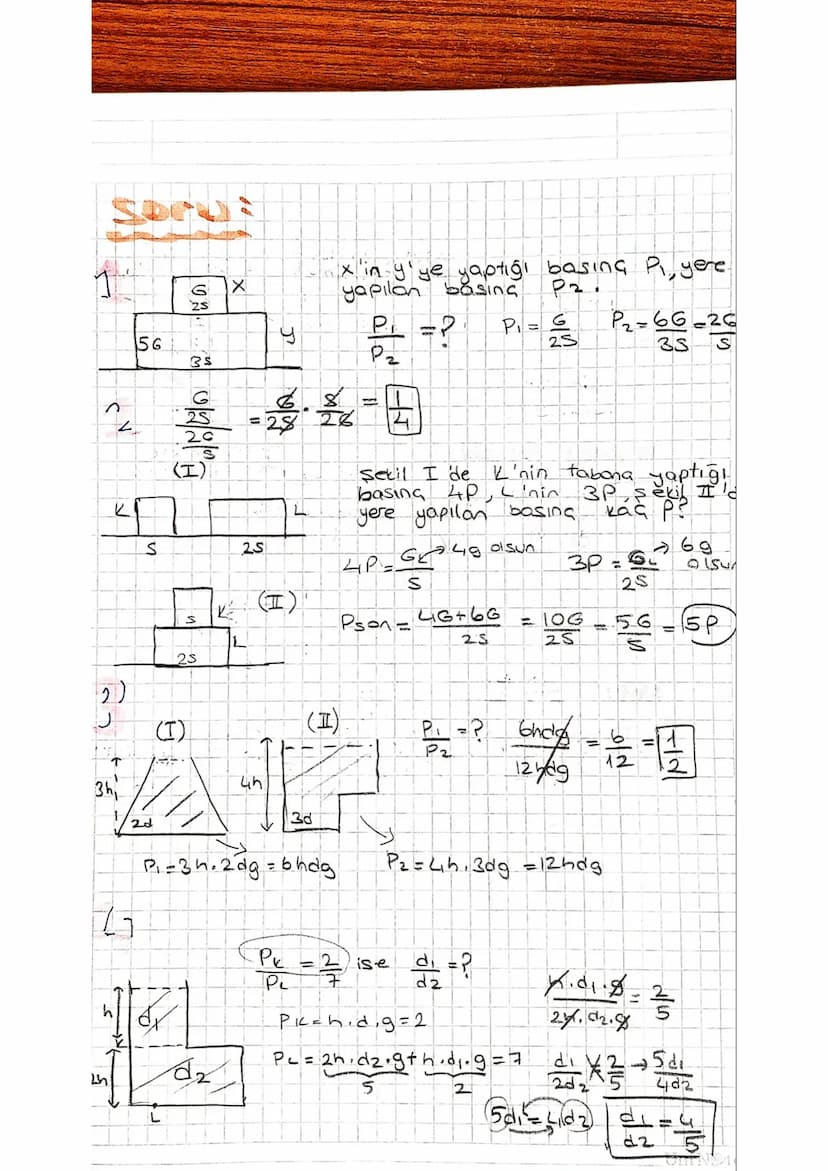 soru:
1
G
2S
X
5G
3S
y
x'in y'ye yaptığı basınç P1, yere
yapılan basınç P2.
P1/P2 = ?
P1 = G/2S
P2 = 6G/3S = 2G/S
2
(G/2S)/(2G/S) = G/2S . S/2G = 1/4
(I)
K
S
L
2S
Şekil I'de K'nin tabana yaptığı
basınç 4P, L'nin 3P, şekil II'd
yere yapılan basınç kaç P?
4P = GK/S → 4g olsun
3P = GL/2S → 6g olsun
(II)
S
K
L
2S
Pson = 4G+6G/2S = 10G/2S = 5G/S = 5P
3
(I)
3h
2d
(II)
4h
3d
P1/P2 = ?
6hdg/12hdg = 6/12 = 1/2
P1 = 3h.2dg = 6hdg
P2 = 4h.3dg = 12hdg
4
PK/PL = 2/7 ise d1/d2 = ?
h
d1
K
2h
d2
L
PK = h.d1.g = 2
PL = 2h.d2.g + h.d1.g = 7
5
2
h.d1.g/2h.d2.g = 2/5
d1/2d2 X 2/5 → 5d1/4d2
5d1 = 4d2
d1/d2 = 4/5